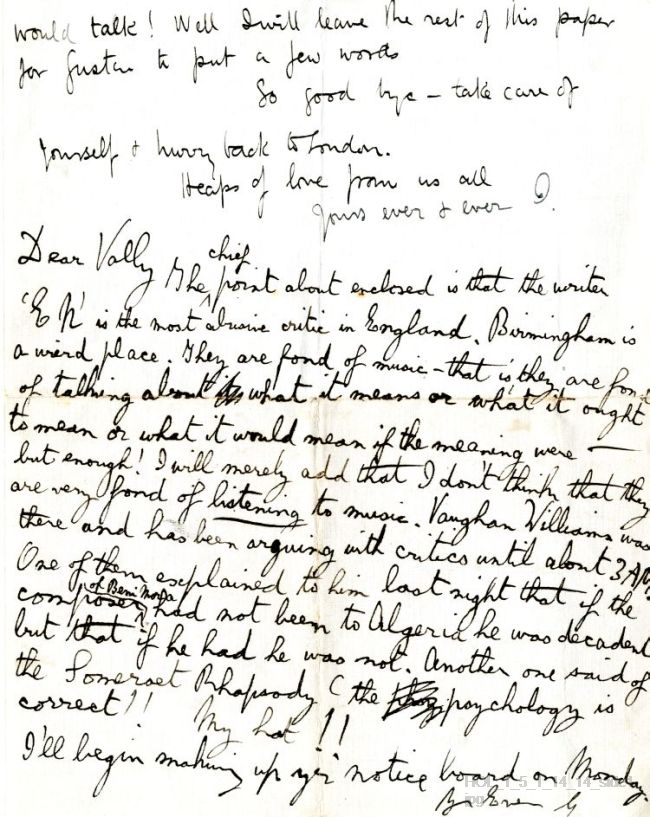 would talk! Well I will leave the rest of this paper
for Gustav to put a few words
So good bye – take care of
yourself & hurry back to London.
Heaps of love from us all
Yours ever & ever
Dear Vally The chief point about enclosed is that the writer
'E N' is the most abusive critic in England. Birmingham is
a weird place. They are fond of music – that is, they are fond
of talking about what it means or what it ought
to mean or what it would mean if the meaning were —
but enough! I will merely add that I don't think that they
are very fond of listening to music. Vaughan Williams was
there and has been arguing with critics until about 3 AM.
One of them explained to him last night that if the
composer of Beni Mora had not been to Algeria he was decadent
but that if he had he was not. Another one said of
the Somerset Rhapsody (the psychology is
correct!!
My hat!!
I'll begin making up yr notice board on Monday.
Yr Ever G